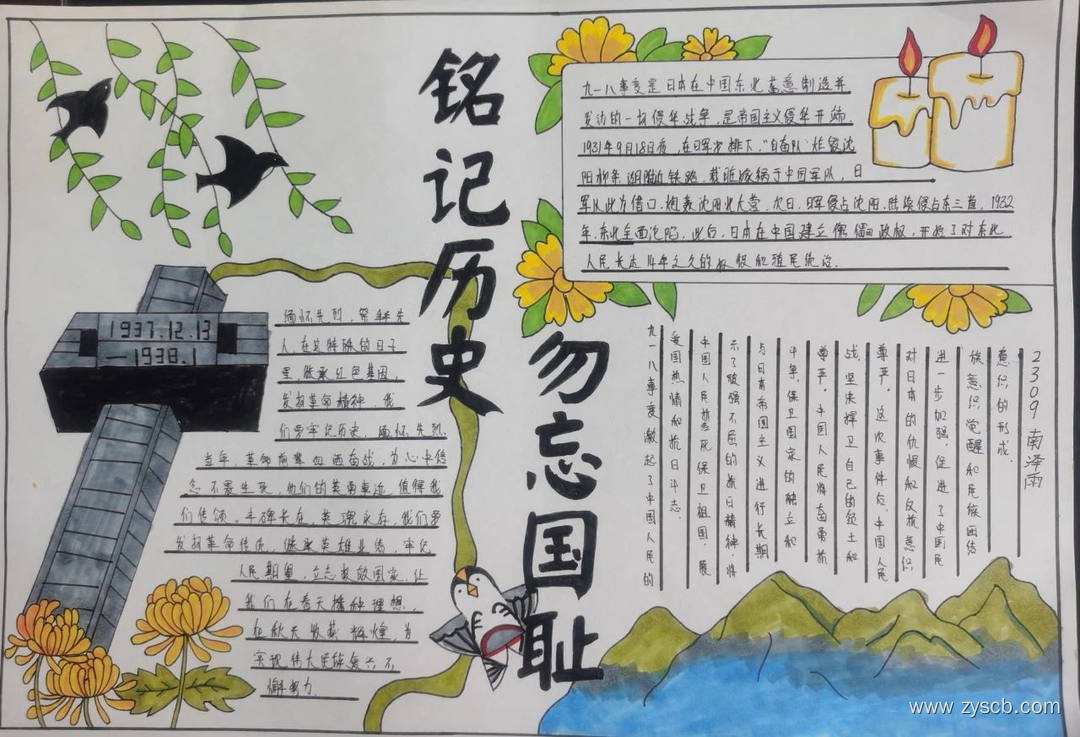 铭记历史
勿忘国耻
九一八事变是日本在中国东北蓄意制造并
发动的一场侵华战争，是帝国主义侵华开端．
1931年9月18日夜，在日军安排下，"自卫队"炸毁沈
阳柳条湖附近铁路，栽赃嫁祸于中国军队，日
军以此为借口，炮轰沈阳北大营，次日，日军侵占沈阳，陆续侵占东三省，1932
年，东北全面沦陷．此后，日本在中国建立傀儡政权，开始了对东北
人民长达14年之久的奴役和殖民统治．
1937.12.13
—1938.1
缅怀先烈，祭拜先
人，在这特殊的日子
里，继承红色基因，
发扬革命精神，我
们要牢记历史，缅怀先烈．
当年，革命前辈血洒奋战，为心中信
念不畏生死，他们的英勇事迹，值得我
们传颂．丰碑长在，英魂永存，我们要
发扬革命传统，继承英雄业绩，牢记
人民期望，立志报效国家，让
我们在春天播种理想，
在秋天收获辉煌，为
实现伟大民族复兴不
懈努力．
九一八事变激起了中国人民的
爱国热情和抗日斗志．
中国人民誓死保卫祖国，展
示了顽强不屈的抗日精神，将
与日本帝国主义进行长期
斗争，保卫国家的独立和
尊严，中国人民将奋勇前
战，坚决捍卫自己的领土和
尊严．这次事件后，中国人民
对日本的仇恨和反抗意识
进一步加强，促进了中国民
族意识觉醒和民族团结
意识的形成．
2309 南泽雨
www.zyscb.com